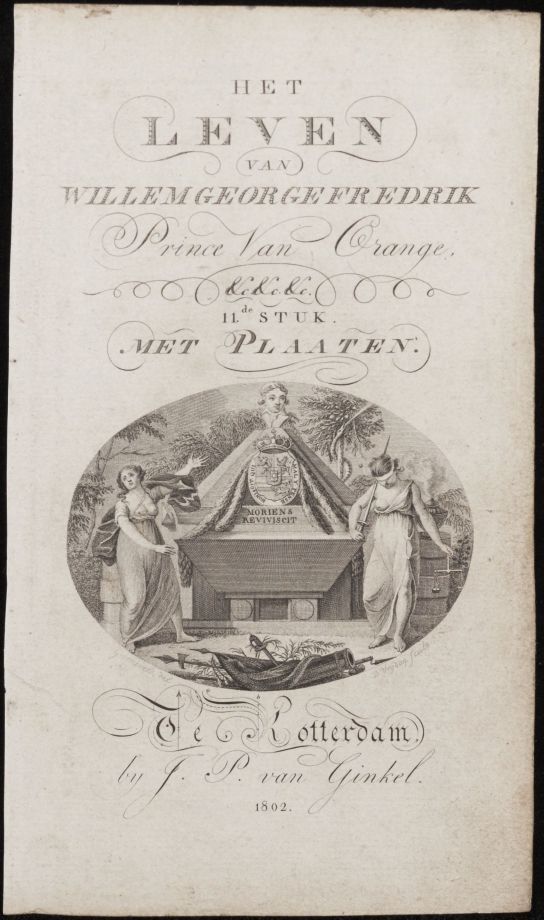 HET
LEVEN
VAN
WILLEM GEORGE FREDRIK
Prince Van Orange,
&c. &c. &c.
II.de STUK.
MET PLAATEN.
MORIENS
REVIVISCIT
Te Rotterdam
by J. P. van Ginkel.
1802.